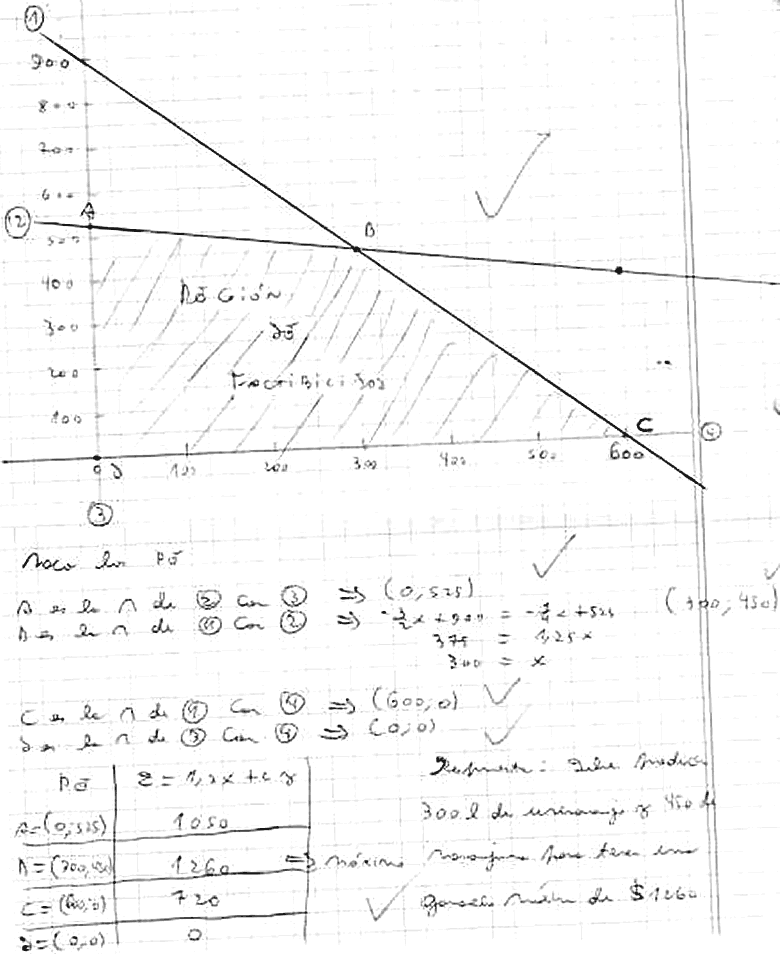 ①
900
800
700
600
② A B
500
400 Región
300 de
200 Factibilidad
100 C ④
0 D 100 200 300 400 500 600
③
Saco los PE
A es la ∩ de ② con ③ ⇒ (0;525)
B es la ∩ de ① con ② ⇒ -3/2x+900 = -1/4x+525 (300;450)
375 = 1,25x
300 = x
C es la ∩ de ① con ④ ⇒ (600;0)
D es la ∩ de ③ con ④ ⇒ (0;0)
PE Z = 1,2x + 2y Respuesta: Debe producir
A=(0;525) 1050 300 l de y 450 de
B=(300;450) 1260 ⇒ máximo naranjura para tener una
C=(600;0) 720 ganancia de $1260
D=(0;0) 0